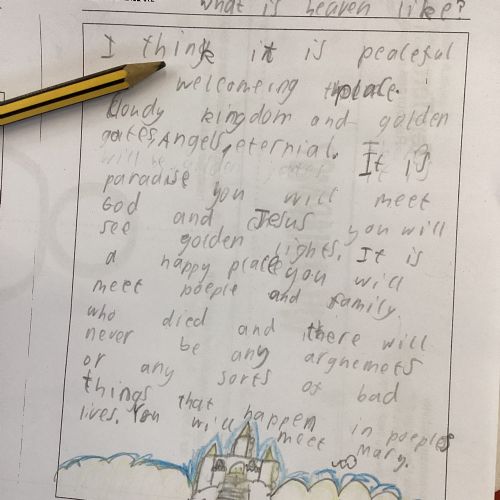 What is heaven like?
I think it is peaceful
welcomeing place.
kloudy kingdom and golden
gates, Angels, eternial. It is
paradise you will meet
God and Jesus you will
see golden lights. It is
a happy place you will
meet poeple and family.
who died and there will
never be any arghemets
or any sorts of bad
things that happen in poeples
lives. You will meet Mary.